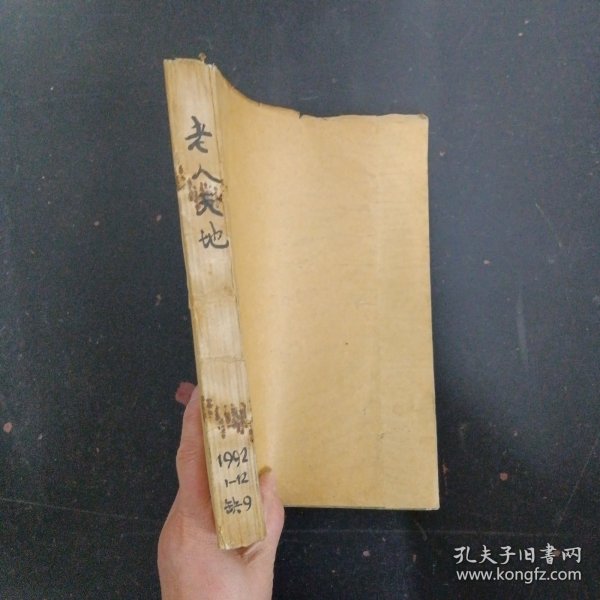 老人天地
1992
1-12
缺9
孔夫子旧书网
www.kongfz.com